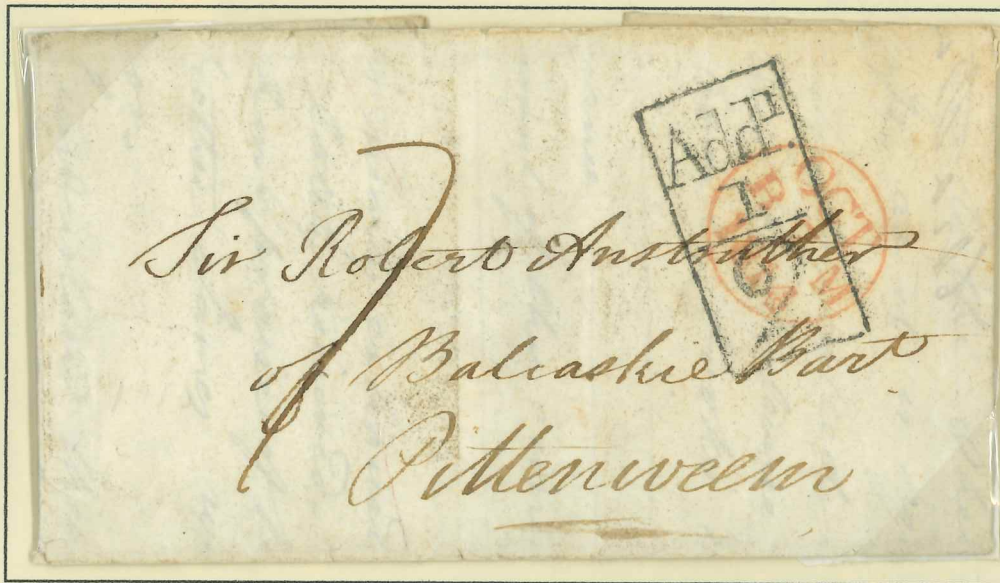 Addl.
1
2
OCT
M
7
Sir Robert Anstruther
of Balcaskie Bart
Pittenweem